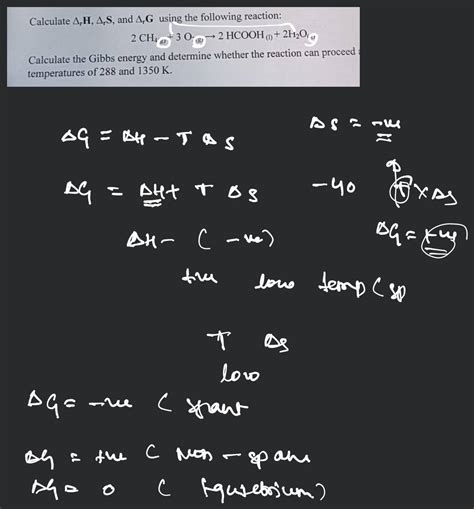 Calculate ΔᵣH, ΔᵣS, and ΔᵣG using the following reaction:
2 CH₄ (g) + 3 O₂ (g) → 2 HCOOH (l) + 2H₂O (g)
Calculate the Gibbs energy and determine whether the reaction can proceed
temperatures of 288 and 1350 K.
ΔS = -ve
ΔG = ΔH - T ΔS
ΔG = ΔH + T ΔS
-40
T × ΔS
ΔH - ( -ve )
ΔG = +ve
+ve low temp ( sp
T ΔS
low
ΔG = -ve ( spant
ΔG = +ve ( Non - spane
ΔG = 0 (